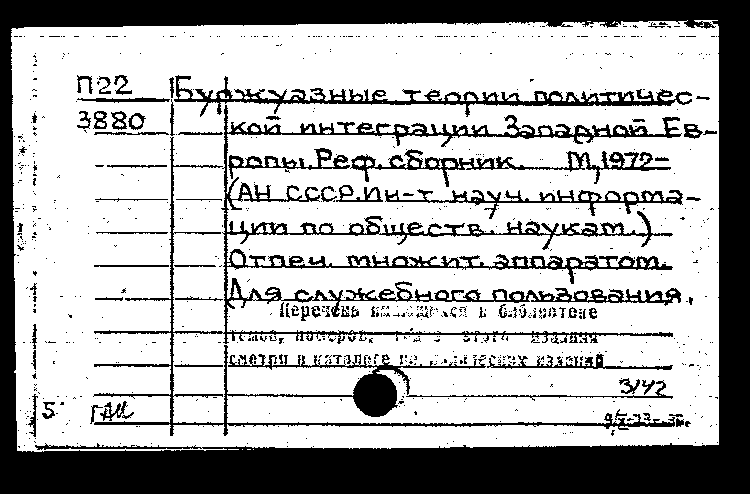 П22 Буржуазные теории политичес-
3880 кой интеграции Западной Ев-
ропы. Реф. сборник. М, 1972-
(АН СССР. Ин-т науч. информа-
ции по обществ. наукам.)
Отпеч. множит. аппаратом.
Для служебного пользования.
Перечень имеющихся в библиотеке
томов, номеров, этого издания
смотри в каталоге издания
3142
5 ГАИ